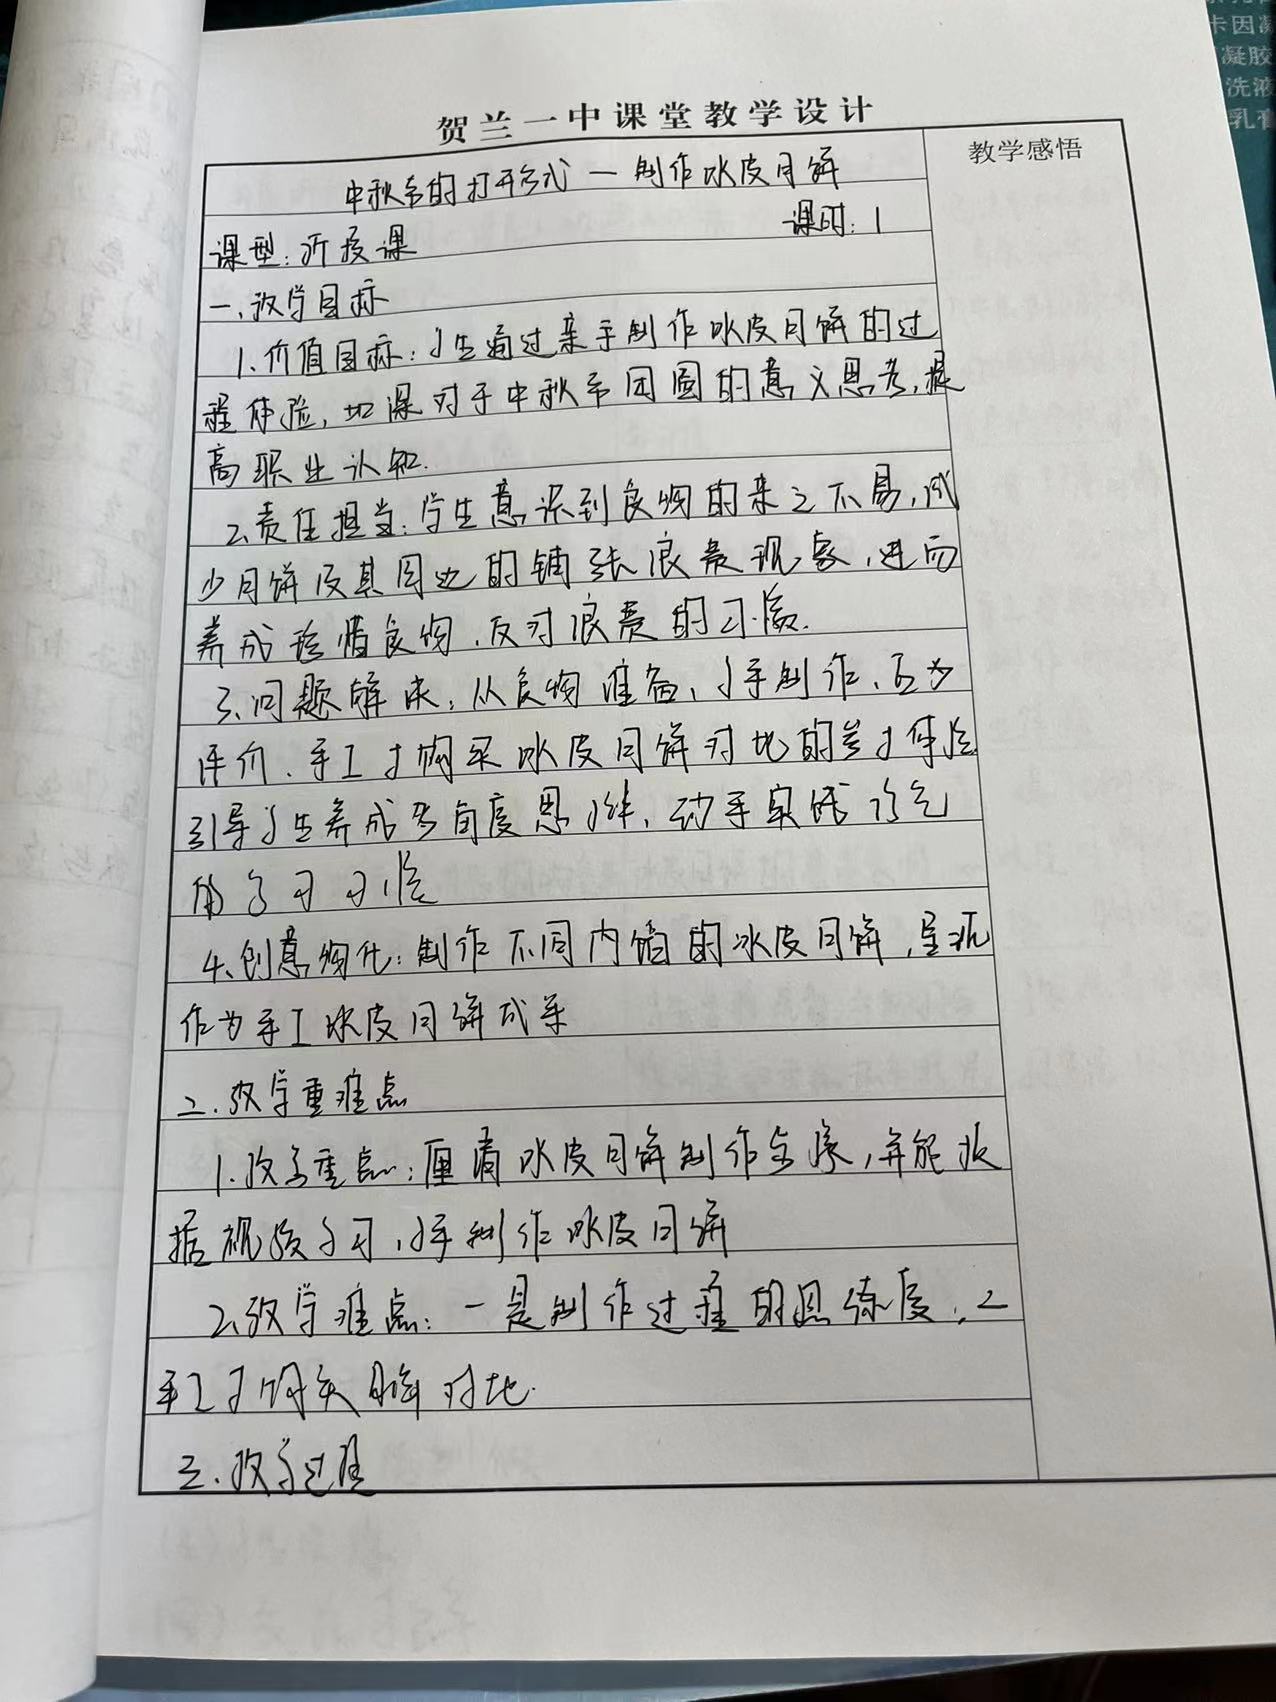 卡因凝
凝胶
洗液
乳膏
贺兰一中课堂教学设计
教学感悟
中秋节的打开形式一制作冰皮月饼
课型：新授课 课时：1
一、教学目标
1.价值目标：学生通过亲手制作冰皮月饼的过
程体验，加深对于中秋节团圆的意义思考，提
高职业认知.
2.责任担当：学生意识到食物的来之不易，减
少月饼及其周边的铺张浪费现象，进而
养成珍惜食物、反对浪费的习惯.
3.问题解决：从食物准备、动手制作、互为
评价、手工与购买冰皮月饼对比的差异体验
引导学生养成多角度思维、动手实践
的学习习惯
4.创意物化：制作不同内馅的冰皮月饼，呈现
作为手工冰皮月饼成果
二.教学重难点
1.教学重点：厘清冰皮月饼制作步骤，并能依
据视频学习，动手制作冰皮月饼
2.教学难点：一是制作过程的熟练度，二
手工与购买月饼对比.
三.教学过程